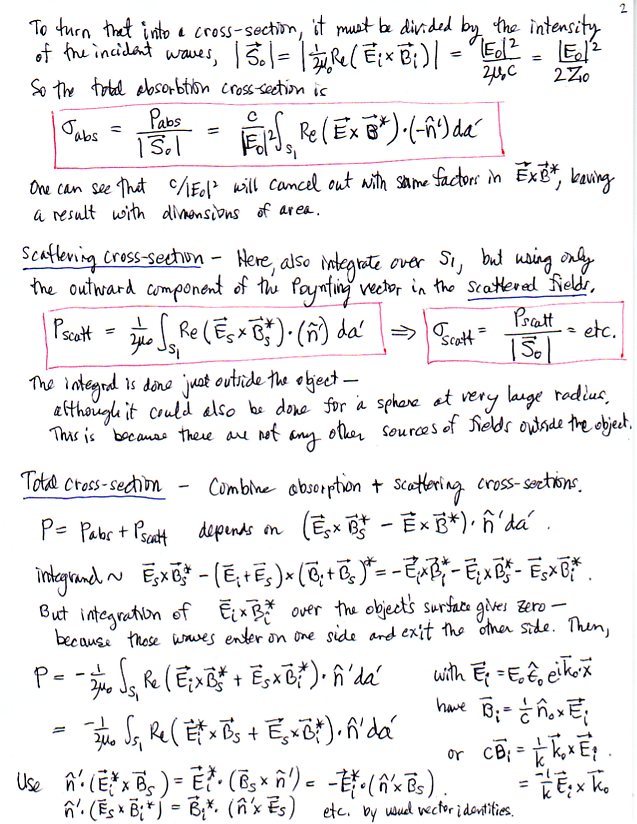 2
To turn that into a cross-section, it must be divided by the intensity
of the incident waves, |S⃗₀| = |1/2μ₀ Re(E⃗ᵢ × B⃗ᵢ)| = |E₀|²/2μ₀c = |E₀|²/2Z₀
So the total absorbtion cross-section is
σabs = Pabs/|S⃗₀| = c/|E₀|² ∫S₁ Re(E⃗ × B⃗*)·(-n̂') da'
One can see that c/|E₀|² will cancel out with same factors in E⃗×B⃗*, leaving
a result with dimensions of area.
Scattering cross-section – Here, also integrate over S₁, but using only
the outward component of the Poynting vector in the scattered fields.
Pscatt = 1/2μ₀ ∫S₁ Re(E⃗s × B⃗s*)·(n̂') da' ⇒ σscatt = Pscatt/|S⃗₀| = etc.
The integral is done just outside the object –
although it could also be done for a sphere at very large radius.
This is because there are not any other sources of fields outside the object.
Total cross-section – Combine absorption + scattering cross-sections.
P = Pabs + Pscatt depends on (E⃗s × B⃗s* – E⃗ × B⃗*)·n̂' da'.
integrand ~ E⃗s×B⃗s* – (E⃗i+E⃗s)×(B⃗i+B⃗s)* = –E⃗i×B⃗i* – E⃗i×B⃗s* – E⃗s×B⃗i*.
But integration of E⃗i×B⃗i* over the object's surface gives zero –
because those waves enter on one side and exit the other side. Then,
P = –1/2μ₀ ∫S₁ Re(E⃗i×B⃗s* + E⃗s×B⃗i*)·n̂' da'
= –1/2μ₀ ∫S₁ Re(E⃗i*×B⃗s + E⃗s×B⃗i*)·n̂' da'
with E⃗i = E₀ ε̂₀ e^{i k⃗₀·x⃗}
have B⃗i = 1/c n̂₀×E⃗i
or cB⃗i = 1/k k⃗₀×E⃗i.
= –1/k E⃗i × k⃗₀
Use n̂'·(E⃗i*×B⃗s) = E⃗i*·(B⃗s×n̂') = –E⃗i*·(n̂'×B⃗s).
n̂'·(E⃗s×B⃗i*) = B⃗i*·(n̂'×E⃗s) etc. by usual vector identities.